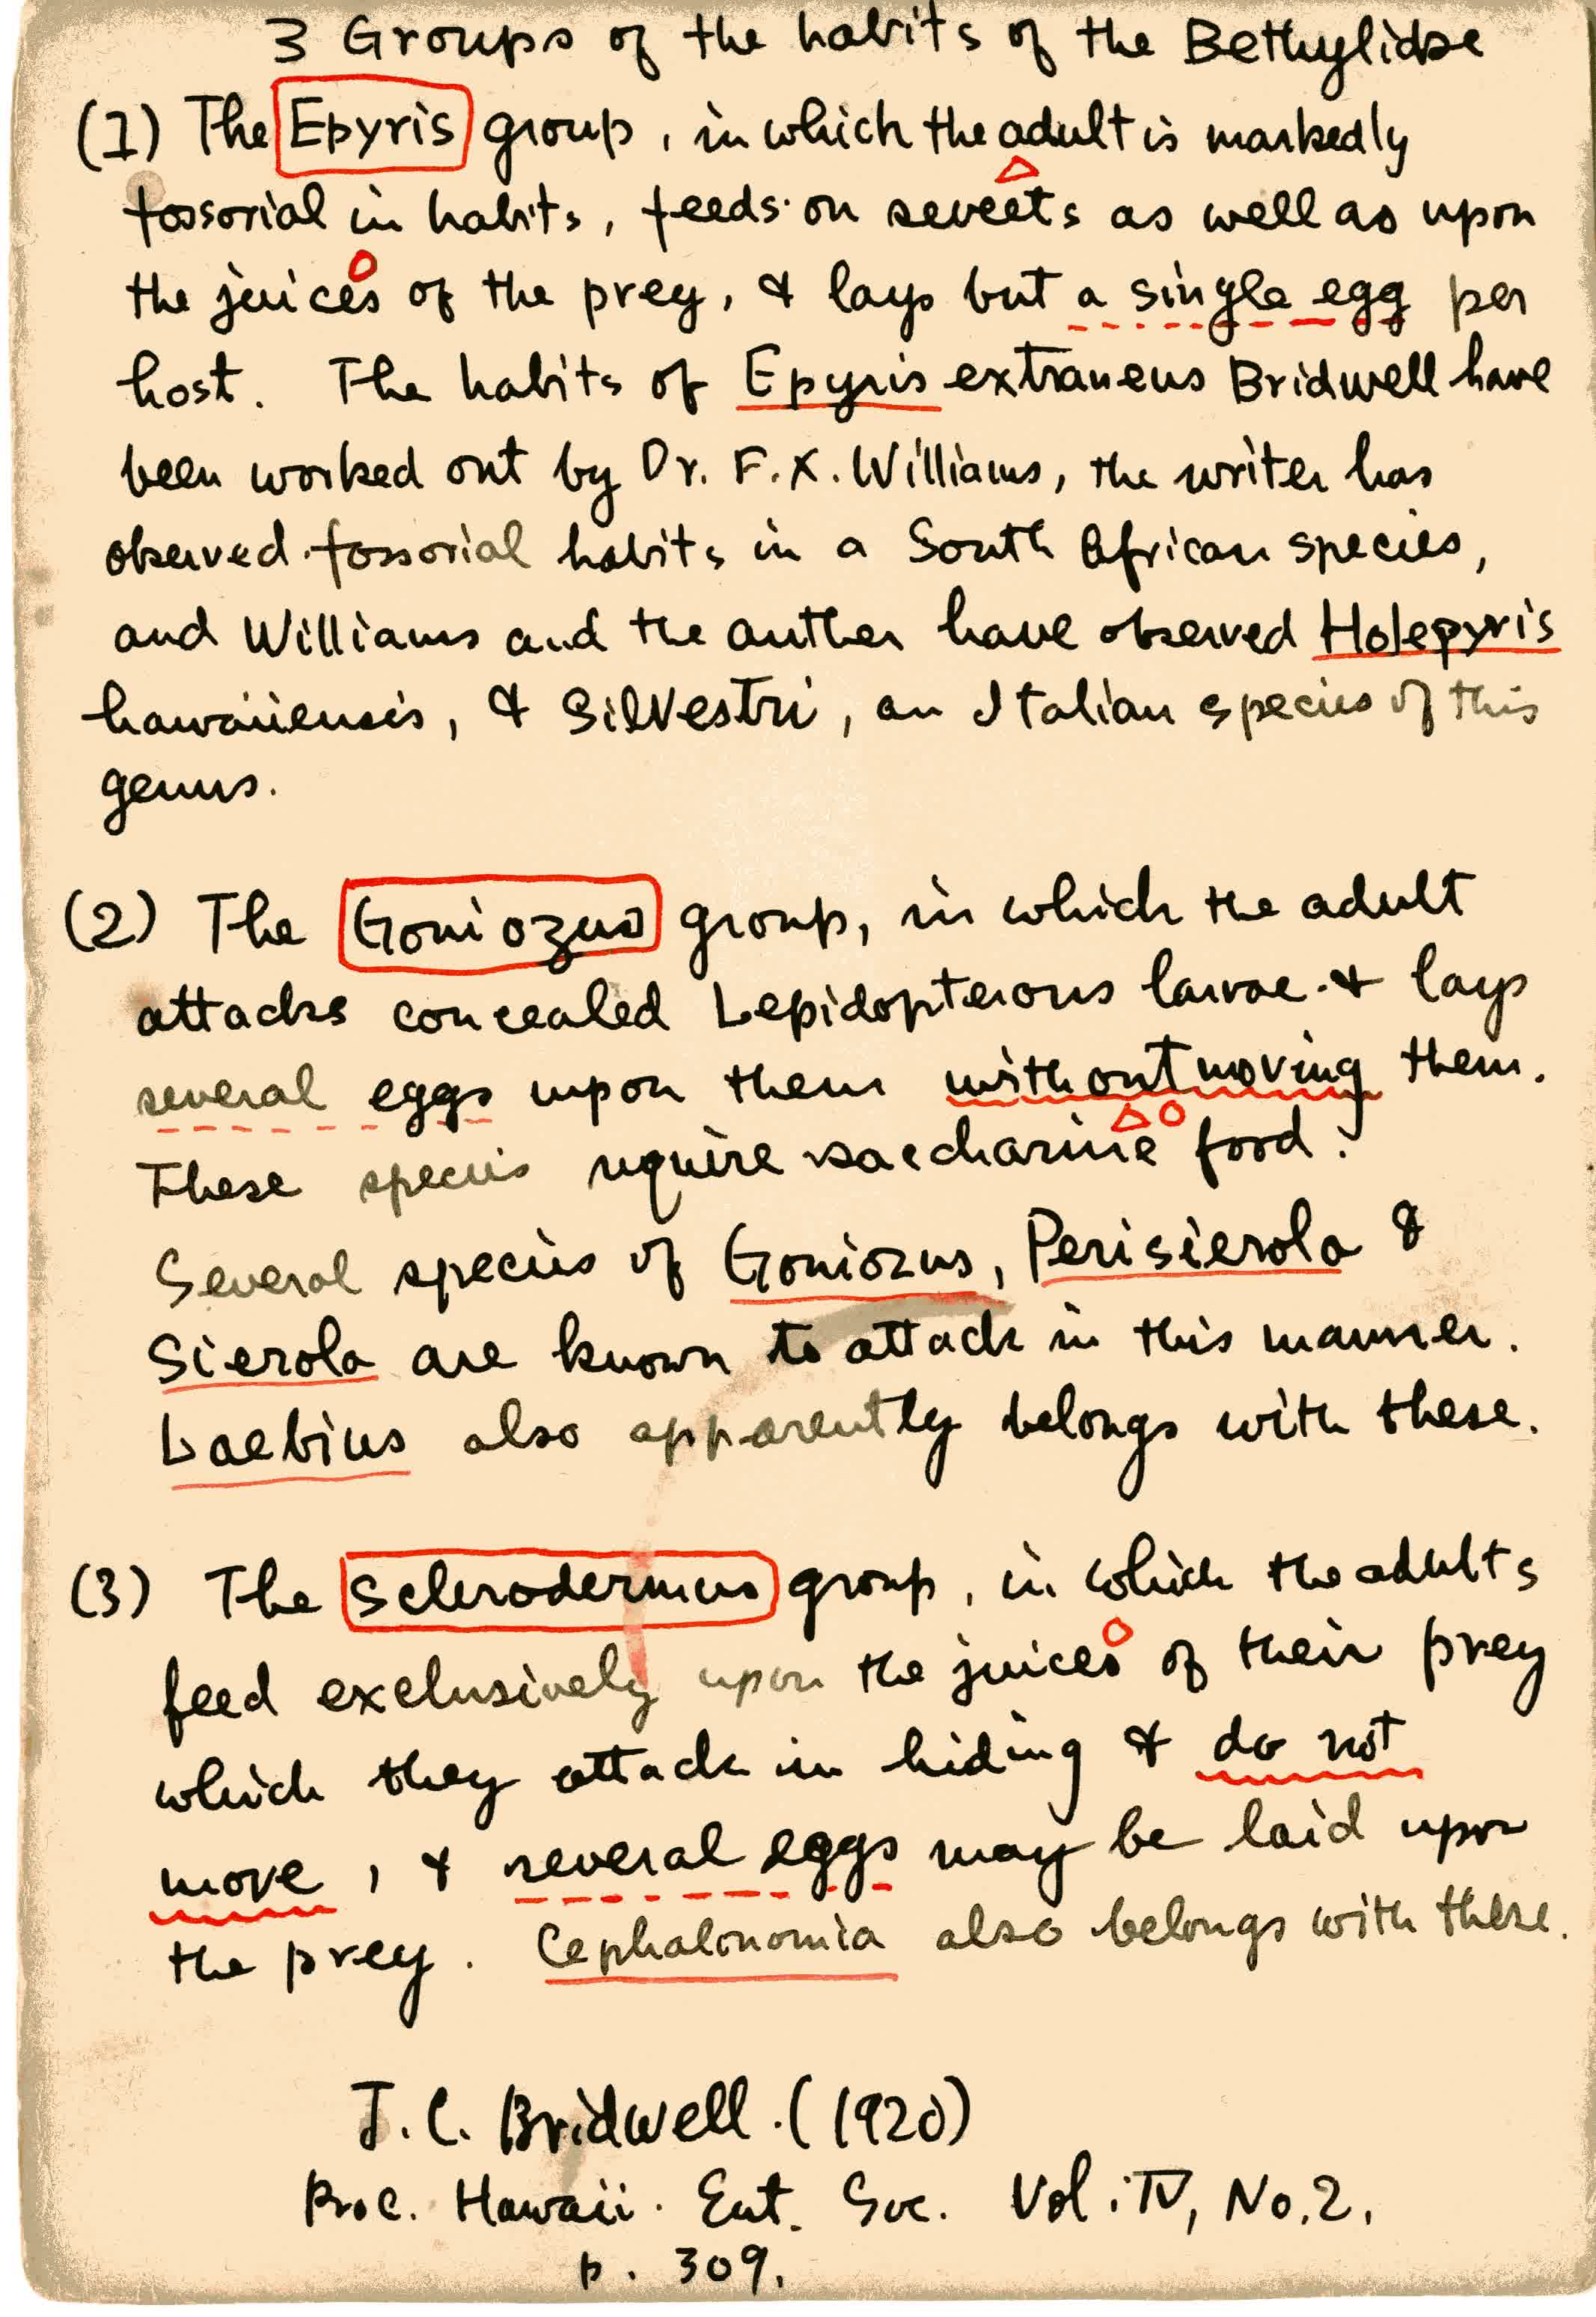 3 Groups of the habits of the Bethylidae
(1) The Epyris group, in which the adult is markedly
fossorial in habits, feeds on sweets as well as upon
the juices of the prey, & lays but a single egg per
host. The habits of Epyris extraneus Bridwell have
been worked out by Dr. F.X. Williams, the writer has
observed fossorial habits in a South African species,
and Williams and the author have observed Holepyris
hawaiiensis, & Silvestri, an Italian species of this
genus.
(2) The Goniozus group, in which the adult
attacks concealed Lepidopterous larvae & lays
several eggs upon them without moving them.
These species require saccharine food.
Several species of Goniozus, Perisierola &
Sierola are known to attack in this manner.
Laebius also apparently belongs with these.
(3) The Sclerodermus group, in which the adults
feed exclusively upon the juices of their prey
which they attack in hiding & do not
move, & several eggs may be laid upon
the prey. Cephalonomia also belongs with these.
J.C. Bridwell. (1920)
Proc. Hawaii. Ent. Soc. Vol. IV, No. 2,
p. 309.